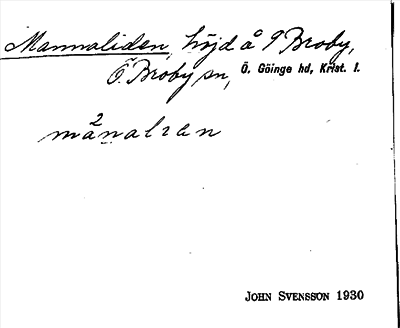 Mannaliden, höjd å 9 Broby,
Ö. Broby sn, Ö. Göinge hd, Krist. l.
2
månalien
JOHN SVENSSON 1930